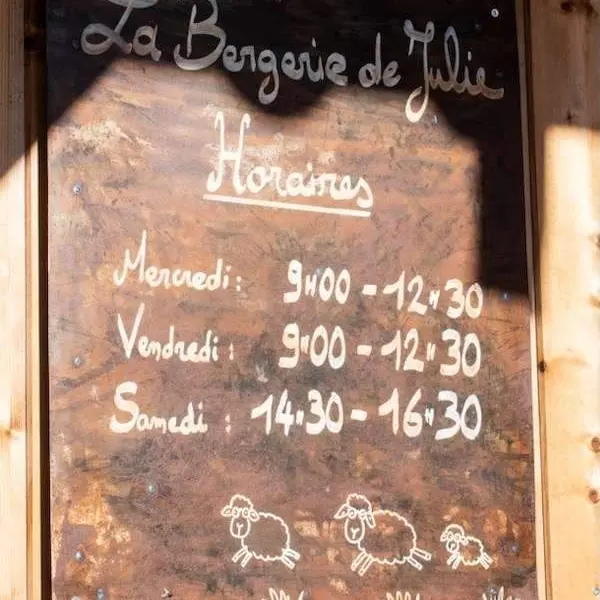 La Bergerie de Julie
Horaires
Mercredi : 9H00 - 12H30
Vendredi : 9H00 - 12H30
Samedi : 14H30 - 16H30